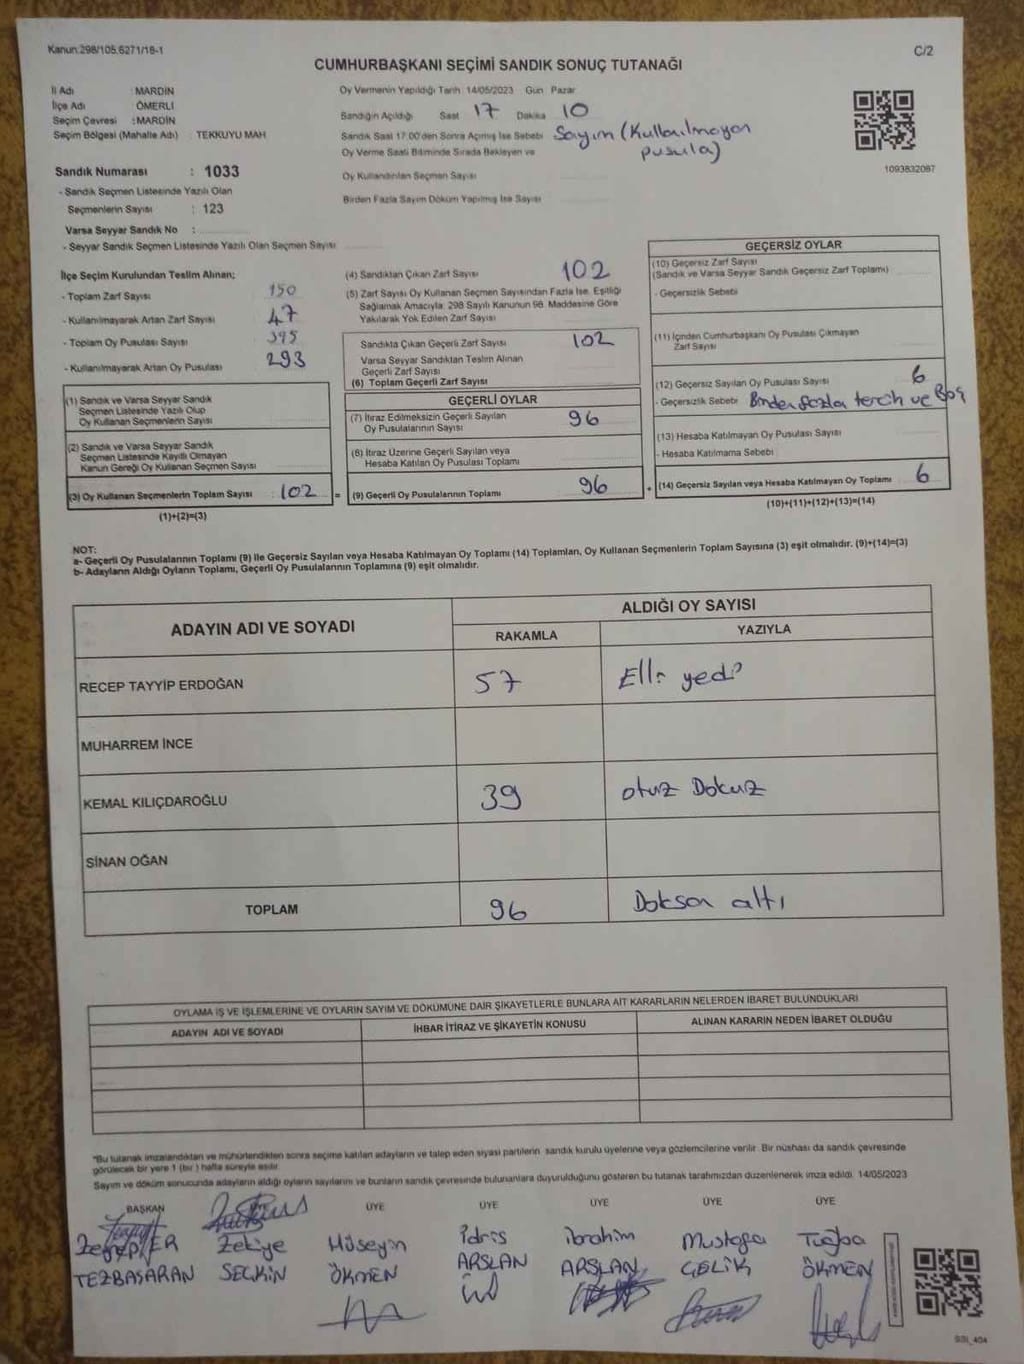 Kanun:298/105,6271/18-1
C/2
CUMHURBAŞKANI SEÇİMİ SANDIK SONUÇ TUTANAĞI
İl Adı : MARDİN
İlçe Adı : ÖMERLİ
Seçim Çevresi : MARDİN
Seçim Bölgesi (Mahalle Adı) : TEKKUYU MAH
Sandık Numarası : 1033
- Sandık Seçmen Listesinde Yazılı Olan
Seçmenlerin Sayısı : 123
Varsa Seyyar Sandık No :
- Seyyar Sandık Seçmen Listesinde Yazılı Olan Seçmen Sayısı
Oy Vermenin Yapıldığı Tarih: 14/05/2023 Gün Pazar
Sandığın Açıldığı Saat 17 Dakika 10
Sandık Saat 17:00'den Sonra Açılmış İse Sebebi Sayım (Kullanılmayan
pusula)
Oy Verme Saati Bitiminde Sırada Bekleyen ve
Oy Kullandırılan Seçmen Sayısı
Birden Fazla Sayım Döküm Yapılmış İse Sayısı
1093832087
İlçe Seçim Kurulundan Teslim Alınan;
- Toplam Zarf Sayısı 150
- Kullanılmayarak Artan Zarf Sayısı 47
- Toplam Oy Pusulası Sayısı 395
- Kullanılmayarak Artan Oy Pusulası 293
(1) Sandık ve Varsa Seyyar Sandık
Seçmen Listesinde Yazılı Olup
Oy Kullanan Seçmenlerin Sayısı
(2) Sandık ve Varsa Seyyar Sandık
Seçmen Listesinde Kayıtlı Olmayan
Kanun Gereği Oy Kullanan Seçmen Sayısı
(3) Oy Kullanan Seçmenlerin Toplam Sayısı : 102 =
(1)+(2)=(3)
(4) Sandıktan Çıkan Zarf Sayısı 102
(5) Zarf Sayısı Oy Kullanan Seçmen Sayısından Fazla İse, Eşitliği
Sağlamak Amacıyla 298 Sayılı Kanunun 98. Maddesine Göre
Yakılarak Yok Edilen Zarf Sayısı
Sandıkta Çıkan Geçerli Zarf Sayısı 102
Varsa Seyyar Sandıktan Teslim Alınan
Geçerli Zarf Sayısı
(6) Toplam Geçerli Zarf Sayısı
GEÇERLİ OYLAR
(7) İtiraz Edilmeksizin Geçerli Sayılan
Oy Pusulalarının Sayısı 96
(8) İtiraz Üzerine Geçerli Sayılan veya
Hesaba Katılan Oy Pusulası Toplamı
(9) Geçerli Oy Pusulalarının Toplamı 96 +
GEÇERSİZ OYLAR
(10) Geçersiz Zarf Sayısı
(Sandık ve Varsa Seyyar Sandık Geçersiz Zarf Toplamı)
- Geçersizlik Sebebi
(11) İçinden Cumhurbaşkanı Oy Pusulası Çıkmayan
Zarf Sayısı
(12) Geçersiz Sayılan Oy Pusulası Sayısı 6
- Geçersizlik Sebebi Birden fazla tercih ve Boş
(13) Hesaba Katılmayan Oy Pusulası Sayısı
- Hesaba Katılmama Sebebi
(14) Geçersiz Sayılan veya Hesaba Katılmayan Oy Toplamı 6
(10)+(11)+(12)+(13)=(14)
NOT:
a- Geçerli Oy Pusulalarının Toplamı (9) ile Geçersiz Sayılan veya Hesaba Katılmayan Oy Toplamı (14) Toplamları, Oy Kullanan Seçmenlerin Toplam Sayısına (3) eşit olmalıdır. (9)+(14)=(3)
b- Adayların Aldığı Oyların Toplamı, Geçerli Oy Pusulalarının Toplamına (9) eşit olmalıdır.
ADAYIN ADI VE SOYADI
ALDIĞI OY SAYISI
RAKAMLA YAZIYLA
RECEP TAYYİP ERDOĞAN 57 Elli yedi
MUHARREM İNCE
KEMAL KILIÇDAROĞLU 39 otuz Dokuz
SİNAN OĞAN
TOPLAM 96 Doksan altı
OYLAMA İŞ VE İŞLEMLERİNE VE OYLARIN SAYIM VE DÖKÜMÜNE DAİR ŞİKAYETLERLE BUNLARA AİT KARARLARIN NELERDEN İBARET BULUNDUKLARI
ADAYIN ADI VE SOYADI İHBAR İTİRAZ VE ŞİKAYETİN KONUSU ALINAN KARARIN NEDEN İBARET OLDUĞU
*Bu tutanak imzalandıktan ve mühürlendikten sonra seçime katılan adayların ve talep eden siyasi partilerin sandık kurulu üyelerine veya gözlemcilerine verilir. Bir nüshası da sandık çevresinde
görülecek bir yere 1 (bir) hafta süreyle asılır.
Sayım ve döküm sonucunda adayların aldığı oyların sayılarını ve bunların sandık çevresinde bulunanlara duyurulduğunu gösteren bu tutanak tarafımızdan düzenlenerek imza edildi. 14/05/2023
BAŞKAN ÜYE ÜYE ÜYE ÜYE ÜYE
Zeynep ER Zekiye Hüseyin idris ibrahim Mustafa Tuğba
TEZBAŞARAN SEÇKİN ÖKMEN ARSLAN ARSLAN ÇELİK ÖKMEN
SSI_404